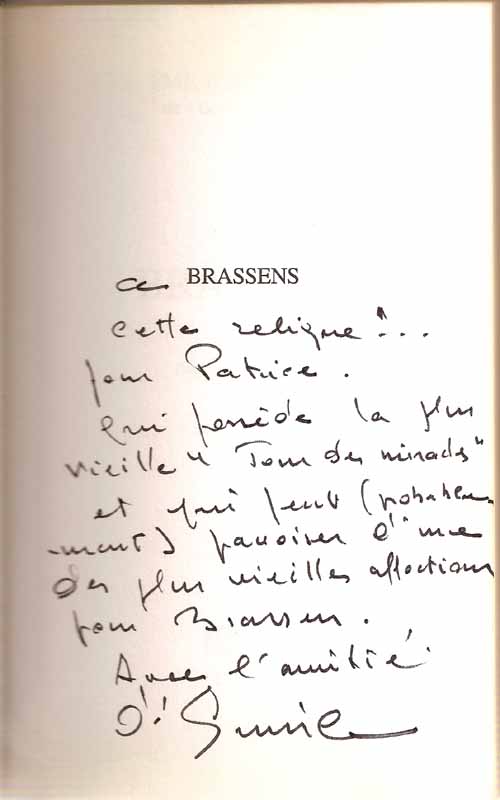 ce BRASSENS
cette relique"...
pour Patrice.
qui possède la plus
vieille "Tour des miracles"
et qui peut (probable-
-ment) pavoiser d'une
des plus vieilles affections
pour Brassens.
Avec l'amitié
d'